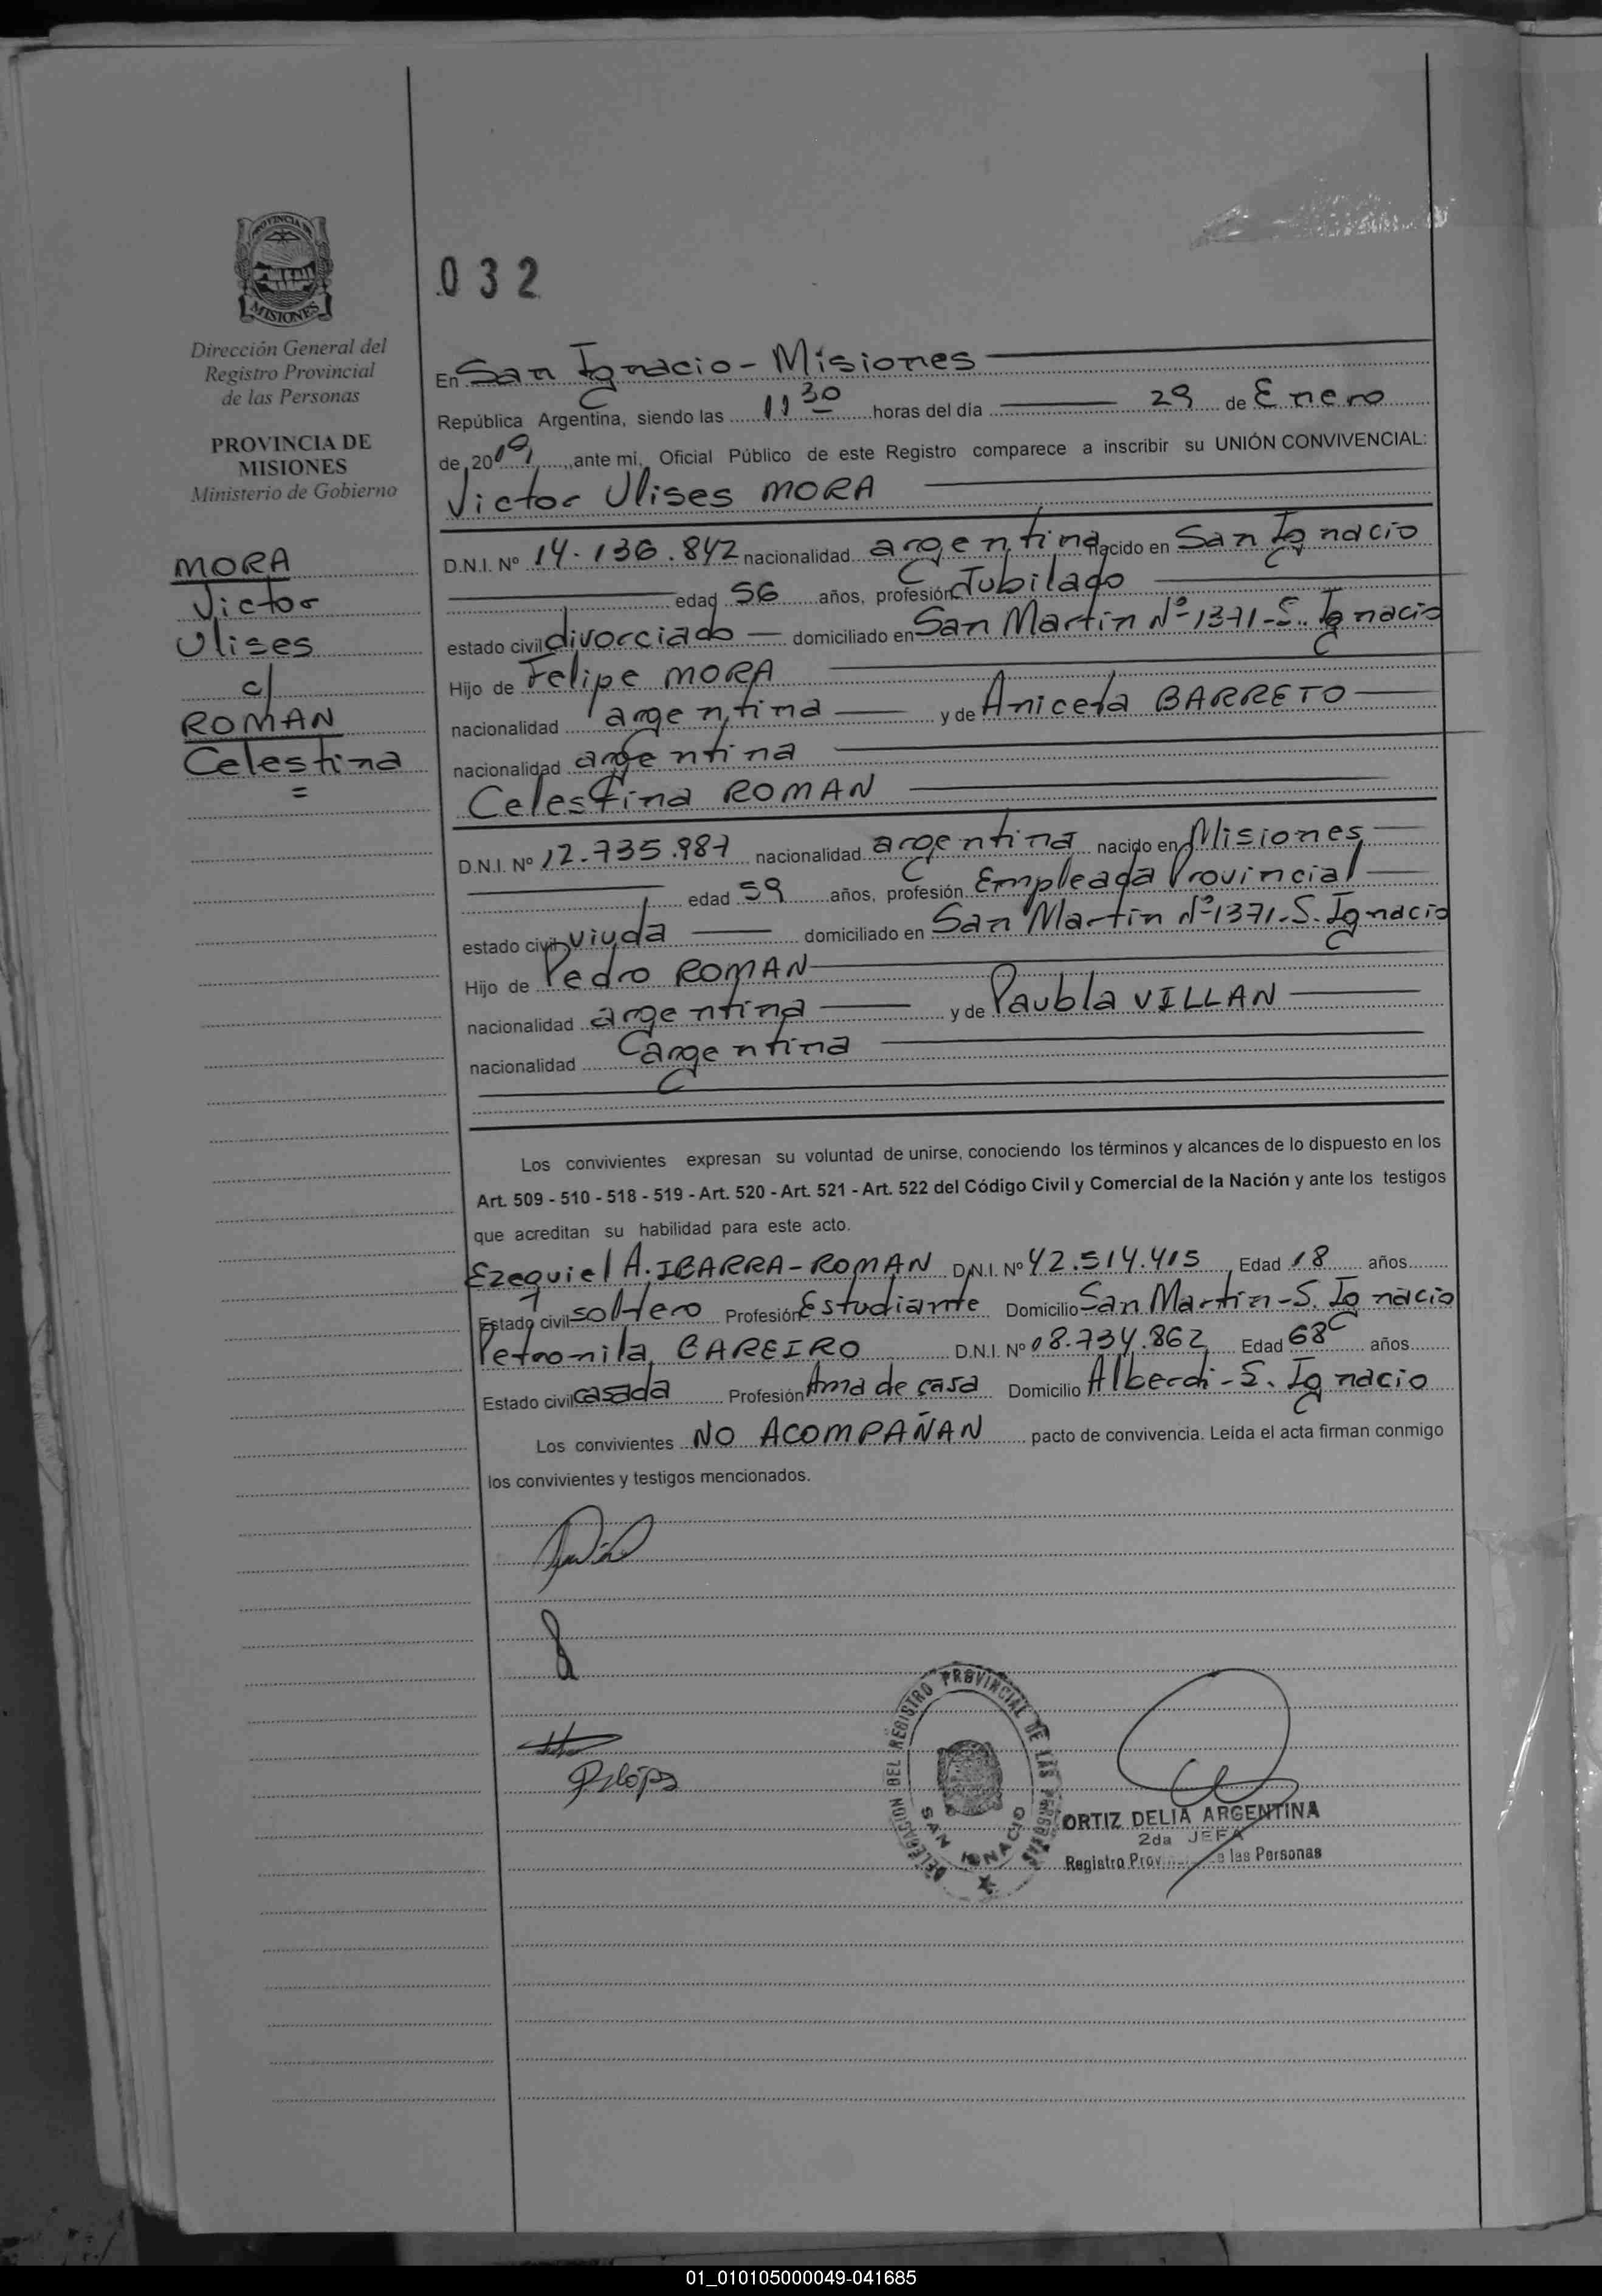 PROVINCIA DE
MISIONES
Dirección General del
Registro Provincial
de las Personas
PROVINCIA DE
MISIONES
Ministerio de Gobierno
MORA
Victor
Ulises
c/
ROMAN
Celestina
=
032
En San Ignacio - Misiones
República Argentina, siendo las 11 30 horas del día 29 de Enero
de 2019, ante mi, Oficial Público de este Registro comparece a inscribir su UNIÓN CONVIVENCIAL:
Victor Ulises MORA
D.N.I. Nº 14.136.842 nacionalidad argentina nacido en San Ignacio
edad 56 años, profesión Jubilado
estado civil divorciado domiciliado en San Martin Nº 1371-S. Ignacio
Hijo de Felipe MORA
nacionalidad argentina y de Aniceta BARRETO
nacionalidad argentina
Celestina ROMAN
D.N.I. Nº 12.735.987 nacionalidad argentina nacido en Misiones
edad 59 años, profesión Empleada Provincial
estado civil viuda domiciliado en San Martin Nº 1371-S. Ignacio
Hijo de Pedro ROMAN
nacionalidad argentina y de Paubla VILLAN
nacionalidad argentina
Los convivientes expresan su voluntad de unirse, conociendo los términos y alcances de lo dispuesto en los
Art. 509 - 510 - 518 - 519 - Art. 520 - Art. 521 - Art. 522 del Código Civil y Comercial de la Nación y ante los testigos
que acreditan su habilidad para este acto.
Ezequiel A. IBARRA-ROMAN D.N.I. Nº 42.514.415 Edad 18 años
Estado civil soltero Profesión Estudiante Domicilio San Martin-S. Ignacio
Petronila CAREIRO D.N.I. Nº 08.734.862 Edad 68 años
Estado civil casada Profesión Ama de casa Domicilio Alberdi-S. Ignacio
Los convivientes NO ACOMPAÑAN pacto de convivencia. Leída el acta firman conmigo
los convivientes y testigos mencionados.
DELEGACION DEL REGISTRO PROVINCIAL DE LAS PERSONAS
SAN IGNACIO
ORTIZ DELIA ARGENTINA
2da JEFA
Registro Prov las Personas
01_010105000049-041685